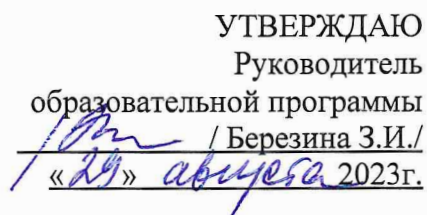 УТВЕРЖДАЮ
Руководитель
образовательной программы
/ Березина З.И./
«29» августа 2023г.